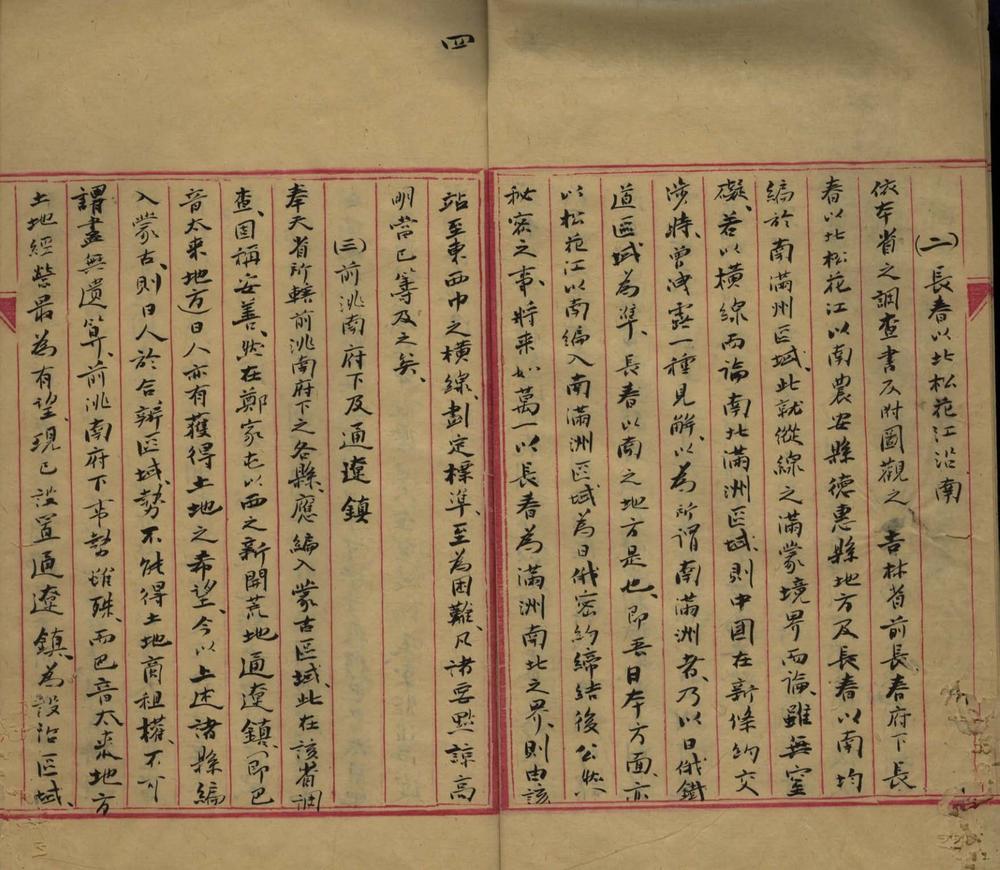 (二)長春以北松花江沿南
依本省之調查書及附圖觀之、吉林省前長春府下長
春以北松花江以南農安縣德惠縣地方及長春以南均
編於南滿州區域、此就縱線之滿蒙境界而論、雖無窒
礙、若以橫線而論南北滿洲區域、則中國在新條約交
涉時、曾洩露一種見解、以為所謂南滿洲者、乃以日俄鐵
道區域為準、長春以南之地方是也、即吾日本方面、亦
以松花江以南編入南滿洲區域為日俄密約締結後公然
秘密之事、將來如萬一以長春為滿洲南北之界、則由該
站至東西巾之橫線、劃定標準、至為困難、凡諸要點諒高
明當已籌及之矣、
(三)前洮南府下及通遼鎮
奉天省所轄前洮南府下之各縣、應編入蒙古區域、此在該省調
查、固稱妥善、然在鄭家屯以西之新開荒地通遼鎮、(即巴
音太來地方)日人亦有獲得土地之希望、今以上述諸縣編
入蒙古、則日人於合辦區域、勢不能得土地商租權、不可
謂盡無遺算、前洮南府下事勢雖殊、而巴音太來地方
土地經營最為有望、現已設置通遼鎮、為設治區域、
四